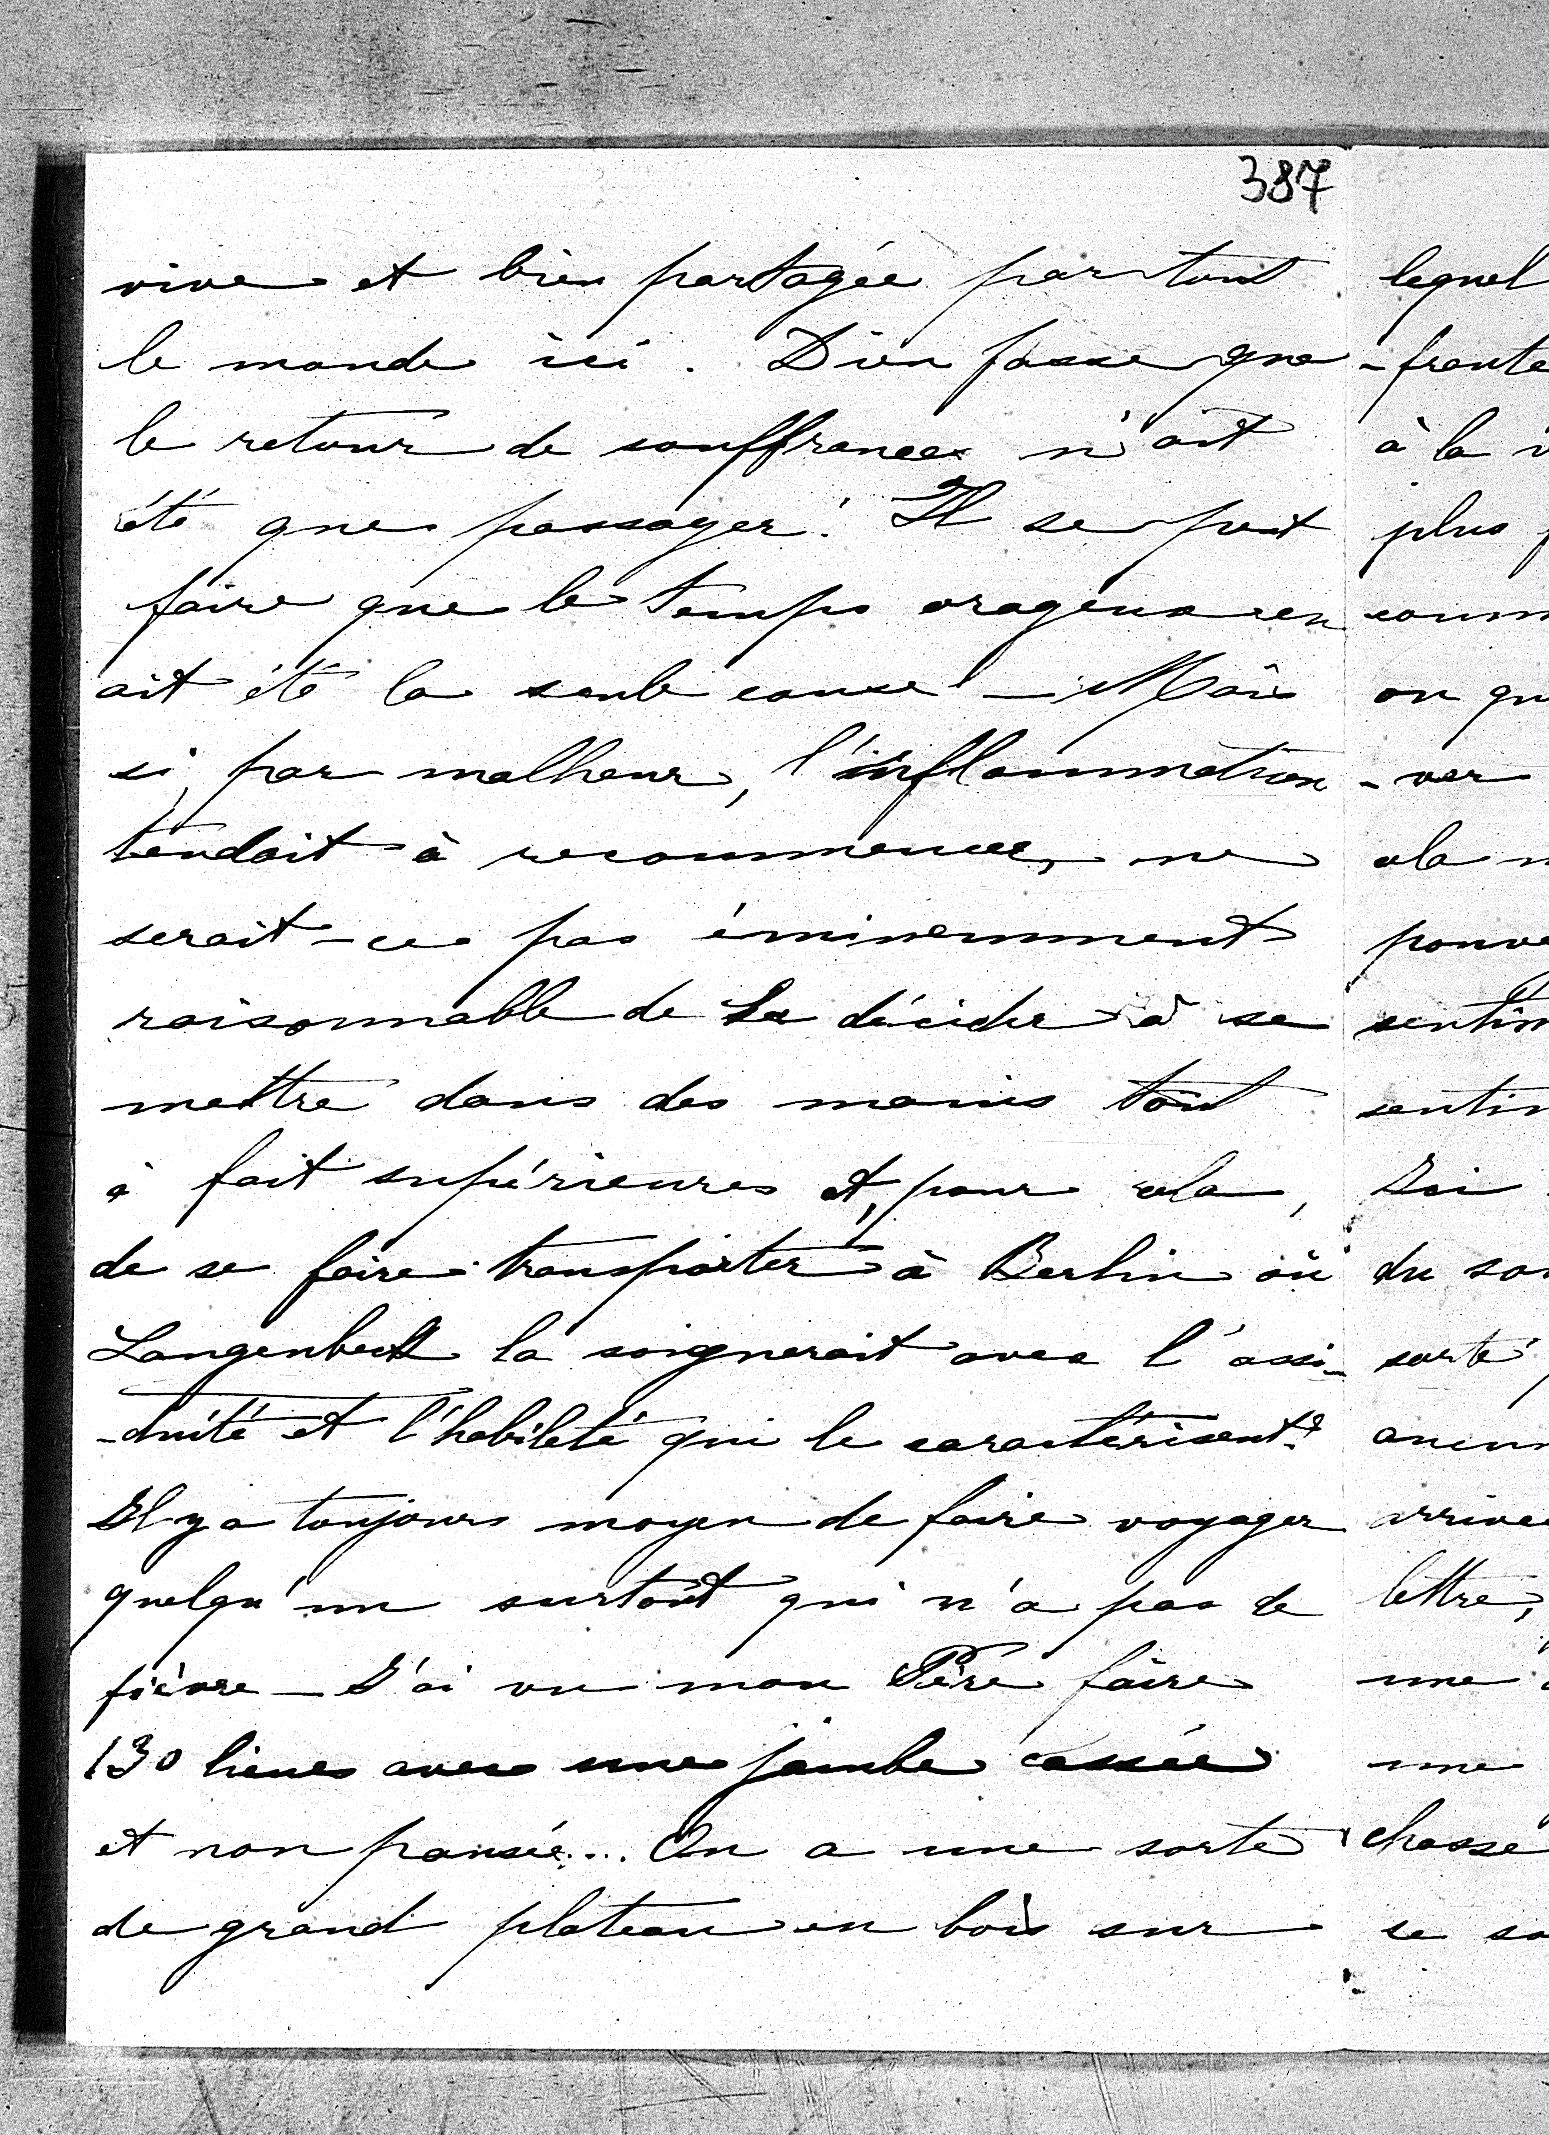 387
vive et bien partagée par tout
le monde ici. Dieu fasse que
le retour de souffrances n'ait
été que passager! Il se peut
faire que le temps orageux en
ait été la seule cause – Mais
si, par malheur, l'inflammation
tendait à recommencer, ne
serait-ce pas éminemment
raisonnable de la décider à se
mettre dans des mains tout
à fait supérieures et, pour cela,
de se faire transporter à Berlin où
Langenbeck la soignerait avec l'assi-
-duité et l'habileté qui le caractérisent?
Il y a toujours moyen de faire voyager
quelqu'un surtout qui n'a pas de
fièvre – J'ai vu mon Père faire
130 lieues avec une jambe cassée
et non pansée... On a une sorte
de grand plateau en bois sur
lequel
-fronte
à la
plus
comm
on qu
-ver
cela
pouve
sentim
sentim
Ici
du
sorte
aucun
arrive
lettre,
une
une
chasse
se so